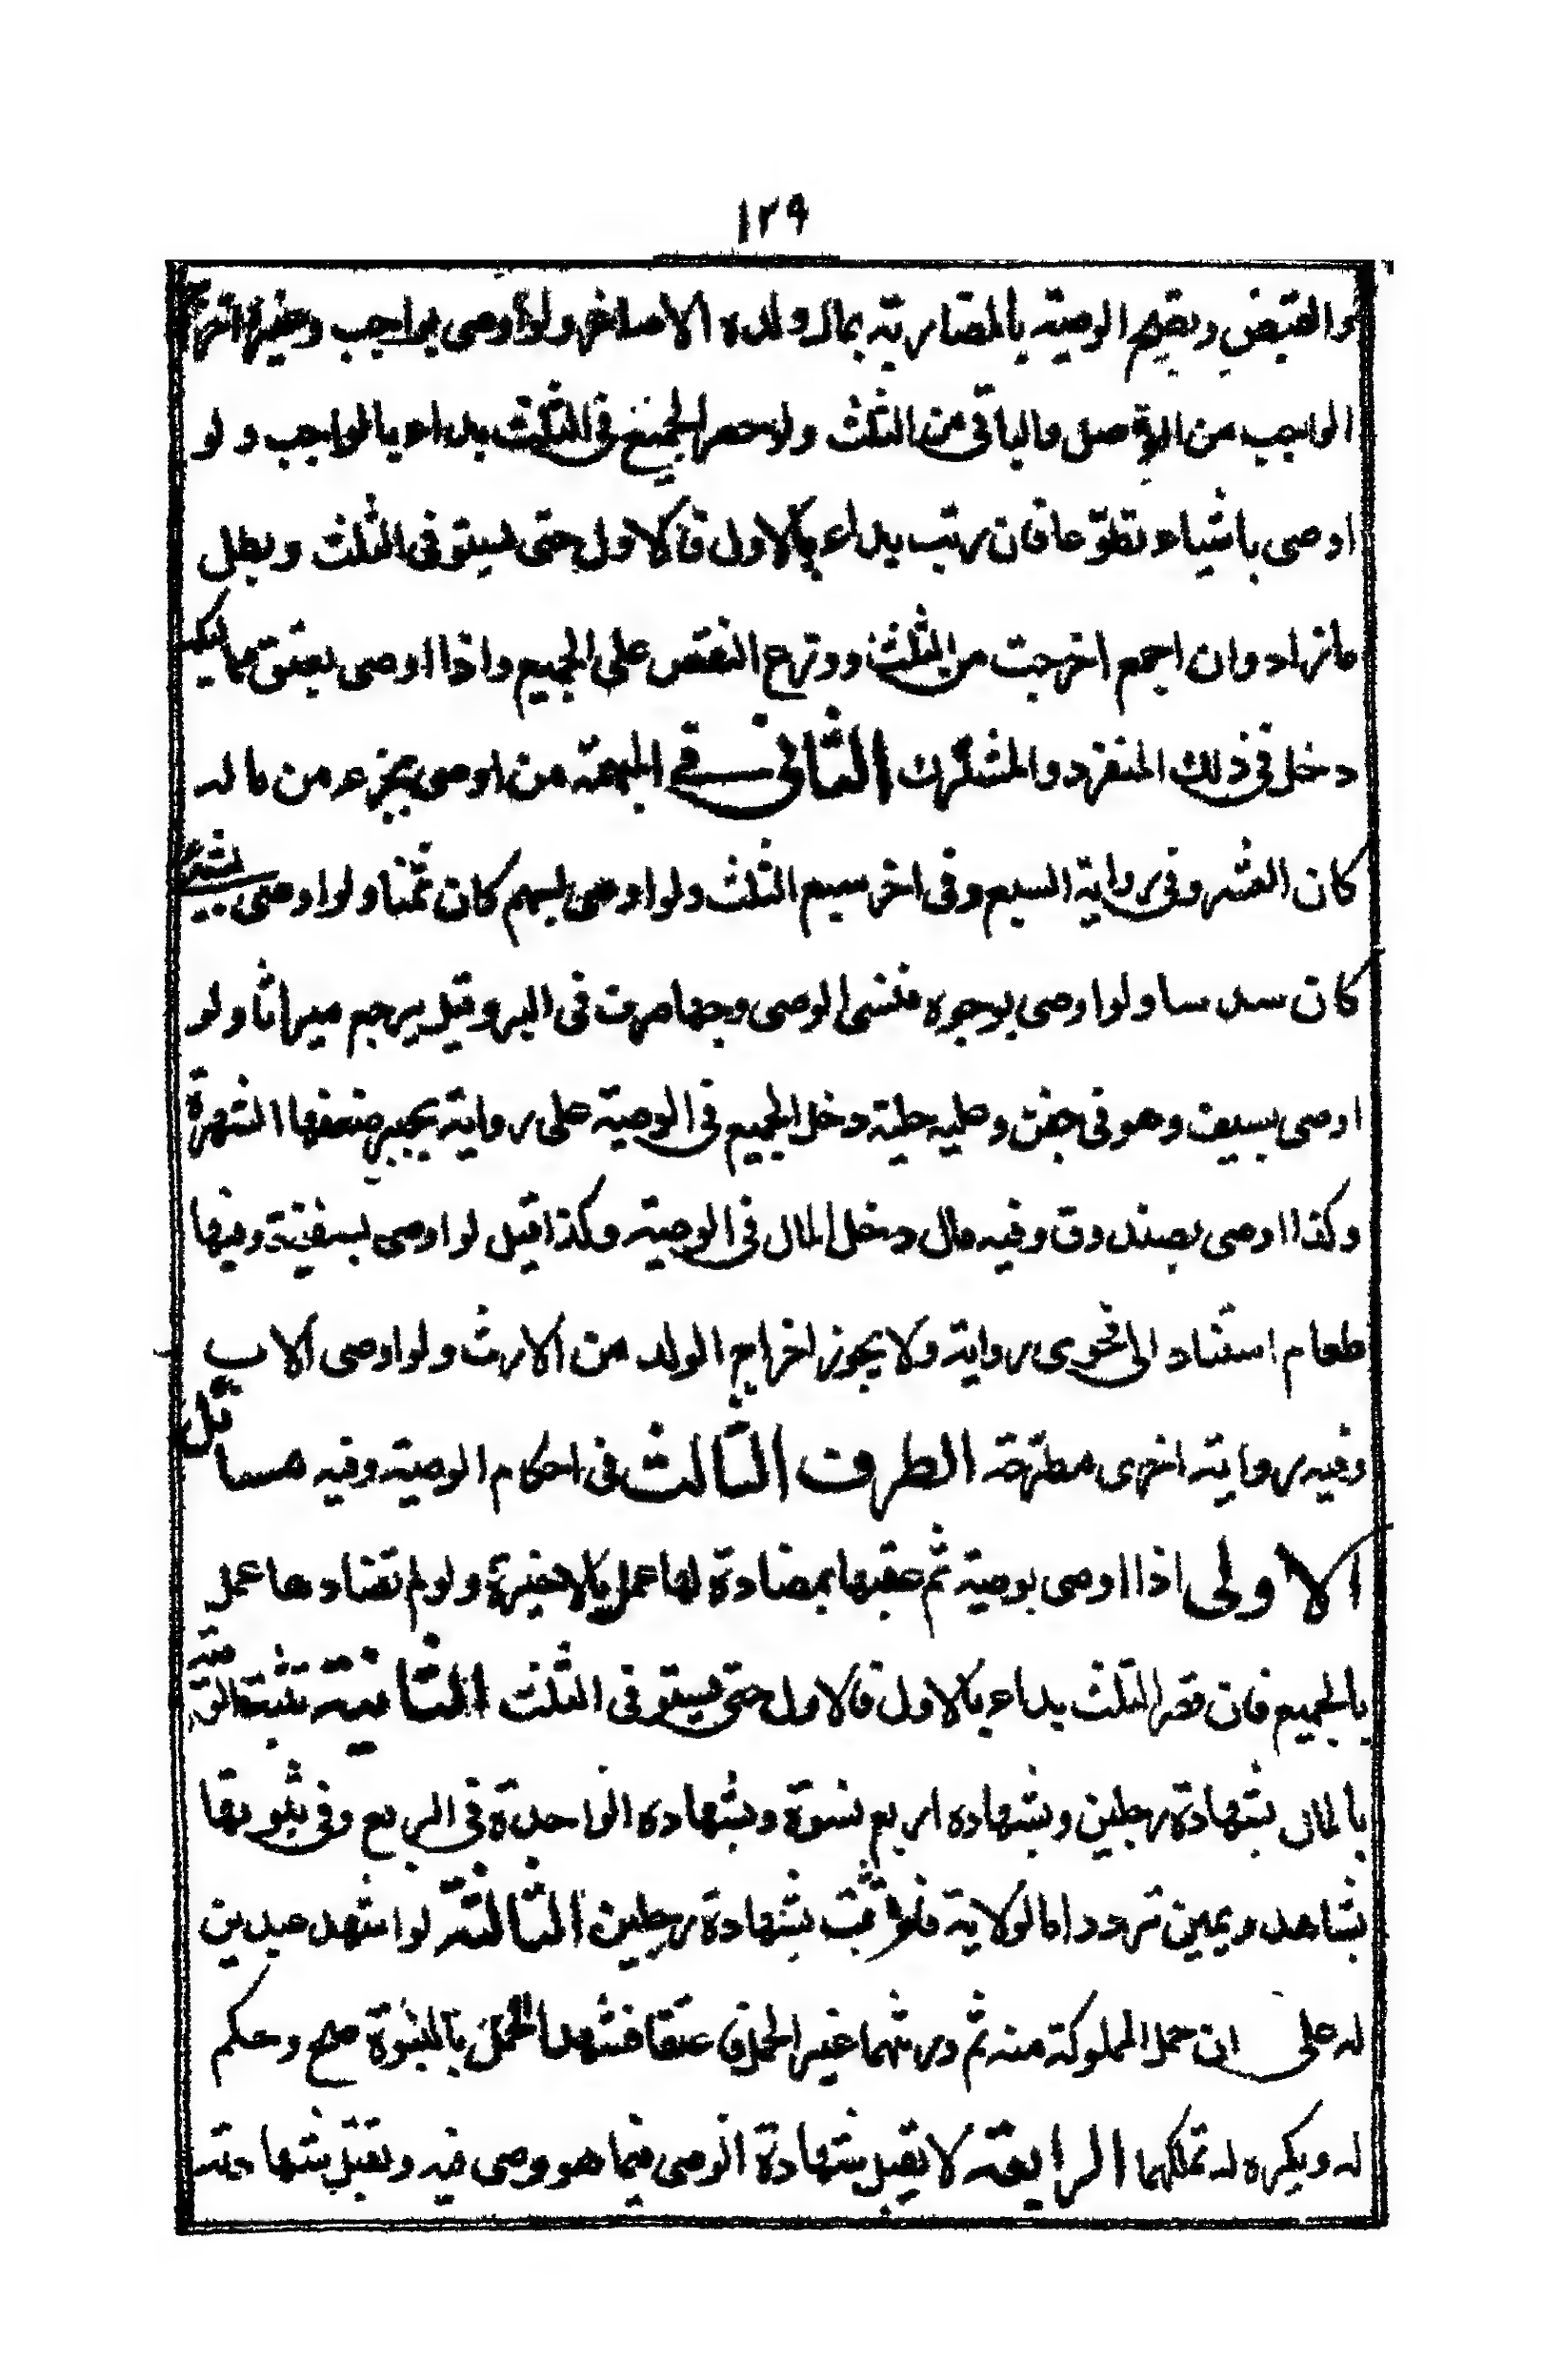 ١٢٩
والقبض وتصح الوصية بالمضاربة بمال ولده الاصاغر ولو اوصى بواجب وغيره اخرج
الواجب من الاصل والباقى من الثلث ولو حصر الجميع فى الثلث بداء بالواجب ولو
اوصى باشياء تطوعا فان رتب بداء بالاول فالاول حتى يستوفى الثلث وبطل
مازاد وان اجمع اخرجت من الثلث ووزع النقص على الجميع واذا اوصى بعتق مماليكه
دخل فى ذلك المنفرد والمشترك الثانى فى المبهمة من اوصى بجزء من ماله
كان العشر وفى رواية السبع وفى اخر سبع الثلث ولو اوصى بسهم كان ثمنا ولو اوصى بشئ
كان سدسا ولو اوصى بوجوه فنسى الوصى وجها صرف فى البر وقيل يرجع ميراثا ولو
اوصى بسيف وهو فى جفن وعليه حلية دخل الجميع فى الوصية على رواية يجبر ضعفها الشهرة
وكذا اوصى بصندوق وفيه مال دخل المال فى الوصية وكذا قيل لو اوصى بسفينة وفيها
طعام استنادا الى فحوى رواية ولا يجوز اخراج الولد من الارث ولو اوصى الاب
وفيه رواية اخرى مطرحة الطرف الثالث فى احكام الوصية وفيه مسائل
الاولى اذا اوصى بوصية ثم عقبها بمضادة لها عمل بالاخيرة ولو لم تضادها عمل
بالجميع فان قصر الثلث بداء بالاول فالاول حتى يستوفى الثلث الثانية تثبت الوصية
بالمال بشهادة رجلين وبشهادة اربع نسوة وبشهادة الواحدة فى الربع وفى ثبوتها
بشاهد ويمين تردد اما الولاية فلا تثبت بشهادة رجلين الثالثة لو اشهد عبدين
له على ان حمل المملوكة منه ثم ورثهما غير الحمل فاعتقا فشهدا للحمل بالبنوة صح وحكم
له ويكره له تملكهما الرابعة لا يقبل شهادة الوصى فيما هو وصى فيه وتقبل شهادته